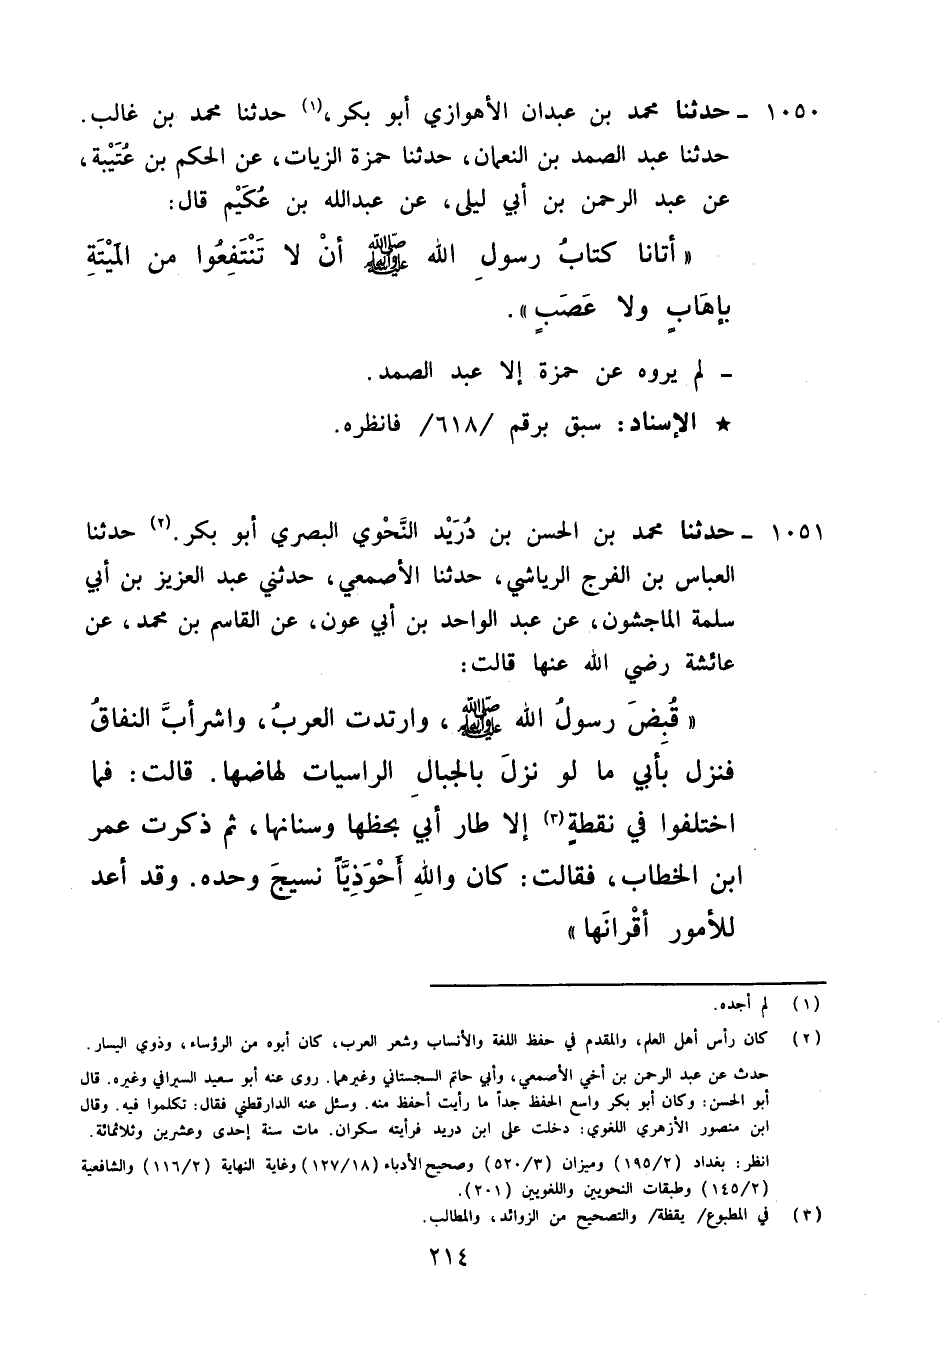 ١٠٥٠ ـ حدثنا محمد بن عبدان الأهوازي أبو بكر،(١) حدثنا محمد بن غالب.
حدثنا عبد الصمد بن النعمان، حدثنا حمزة الزيات، عن الحكم بن عُتَيْبة،
عن عبد الرحمن بن أبي ليلى، عن عبدالله بن عُكَيْم قال:
« أتانا كتابُ رسولِ الله ﷺ أنْ لا تَنْتَفِعُوا من المَيْتَةِ
بإهَابٍ ولا عَصَبٍ».
ـ لم يروه عن حمزة إلا عبد الصمد.
★ الإسناد: سبق برقم /٦١٨/ فانظره.
١٠٥١ ـ حدثنا محمد بن الحسن بن دُرَيْد النَّحْوي البصري أبو بكر.(٢) حدثنا
العباس بن الفرج الرياشي، حدثنا الأصمعي، حدثني عبد العزيز بن أبي
سلمة الماجشون، عن عبد الواحد بن أبي عون، عن القاسم بن محمد، عن
عائشة رضي الله عنها قالت:
« قُبِضَ رسولُ الله ﷺ، وارتدت العربُ، واشرأبَّ النفاقُ
فنزل بأبي ما لو نزلَ بالجبالِ الراسيات لهاضها. قالت: فما
اختلفوا في نقطةٍ(٣) إلا طار أبي بحظها وسنانها، ثم ذكرت عمر
ابن الخطاب، فقالت: كان واللهِ أَحْوَذِيَّاً نسيجَ وحده. وقد أعد
للأمور أقْرانَها»
(١) لم أجده.
(٢) كان رأس أهل العلم، والمقدم في حفظ اللغة والأنساب وشعر العرب، كان أبوه من الرؤساء، وذوي اليسار.
حدث عن عبد الرحمن بن أخي الأصمعي، وأبي حاتم السجستاني وغيرهما. روى عنه أبو سعيد السيرافي وغيره. قال
أبو الحسن: وكان أبو بكر واسع الحفظ جداً ما رأيت أحفظ منه. وسئل عنه الدارقطني فقال: تكلموا فيه. وقال
ابن منصور الأزهري اللغوي: دخلت على ابن دريد فرأيته سكران. مات سنة إحدى وعشرين وثلاثمائة.
انظر: بغداد (١٩٥/٢) وميزان (٥٢٠/٣) وصحيح الأدباء (١٢٧/١٨) وغاية النهاية (١١٦/٢) والشافعية
(١٤٥/٢) وطبقات النحويين واللغويين (٢٠١).
(٣) في المطبوع/ يقظة/ والتصحيح من الزوائد، والمطالب.
٢١٤